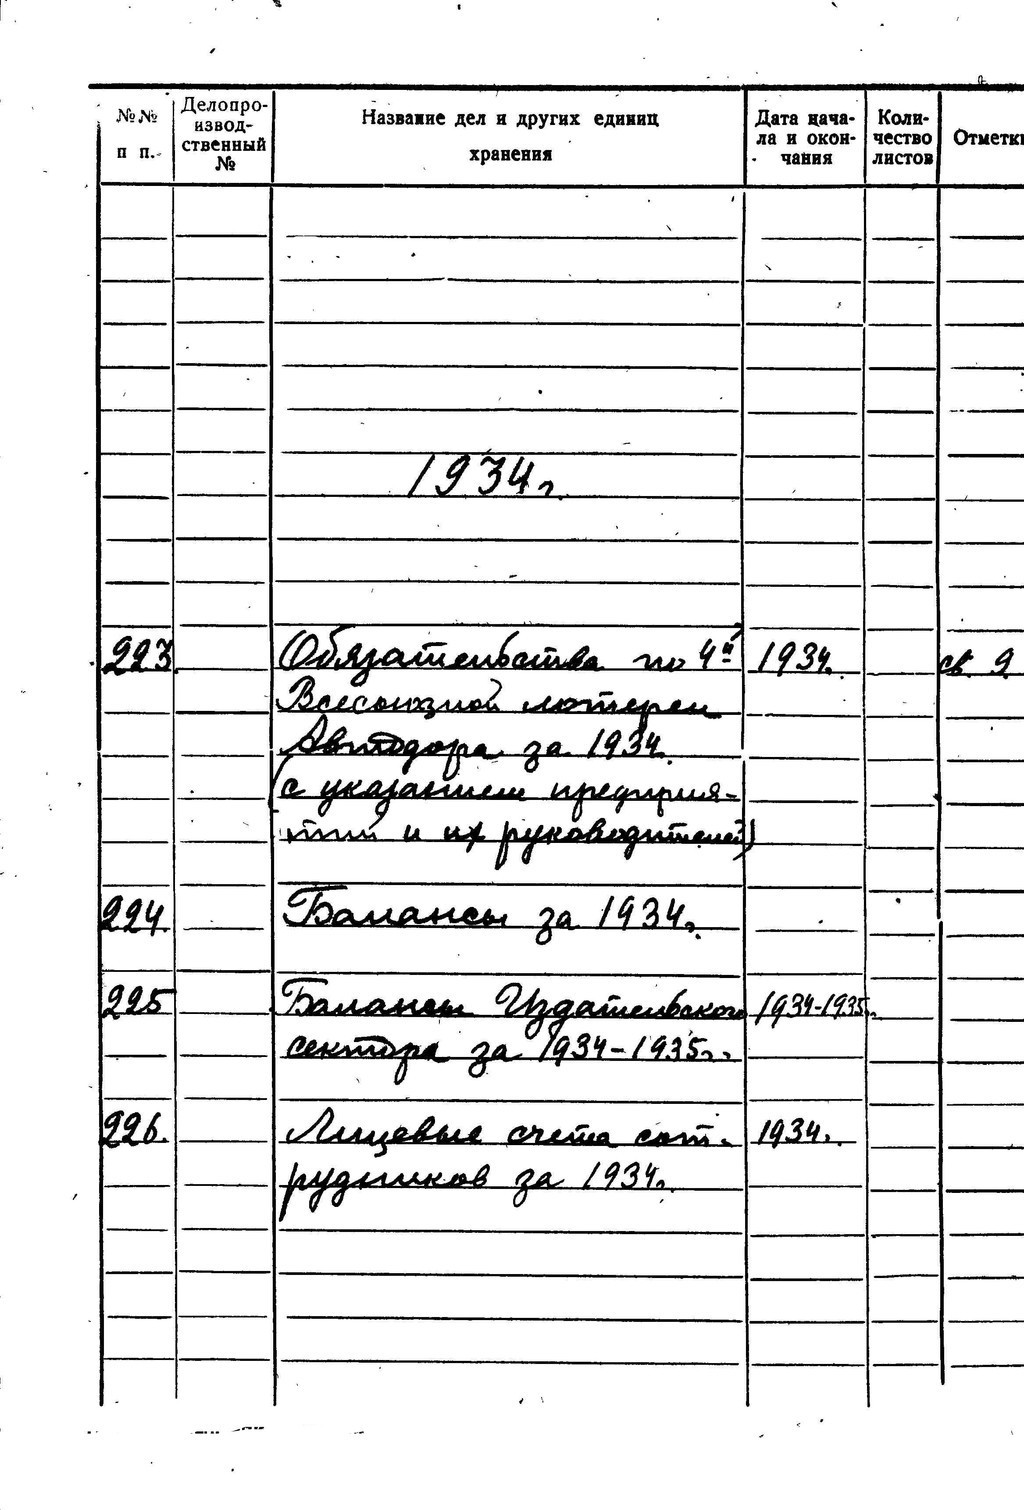 №№ п п.
Делопроизвод-ственный №
Название дел и других единиц
хранения
Дата нача-
ла и окон-
чания
Коли-
чество
листов
Отметки
1934г.
223 Обязательства по 4й 1934. св. 9.
Всесоюзной лотереи
Автодора за 1934.
(с указанием предприя-
тий и их руководителей)
224. Балансы за 1934г.
225 Балансы Издательского 1934-1935г.
сектора за 1934-1935г.
226. Лицевые счета сот- 1934г.
рудников за 1934г.